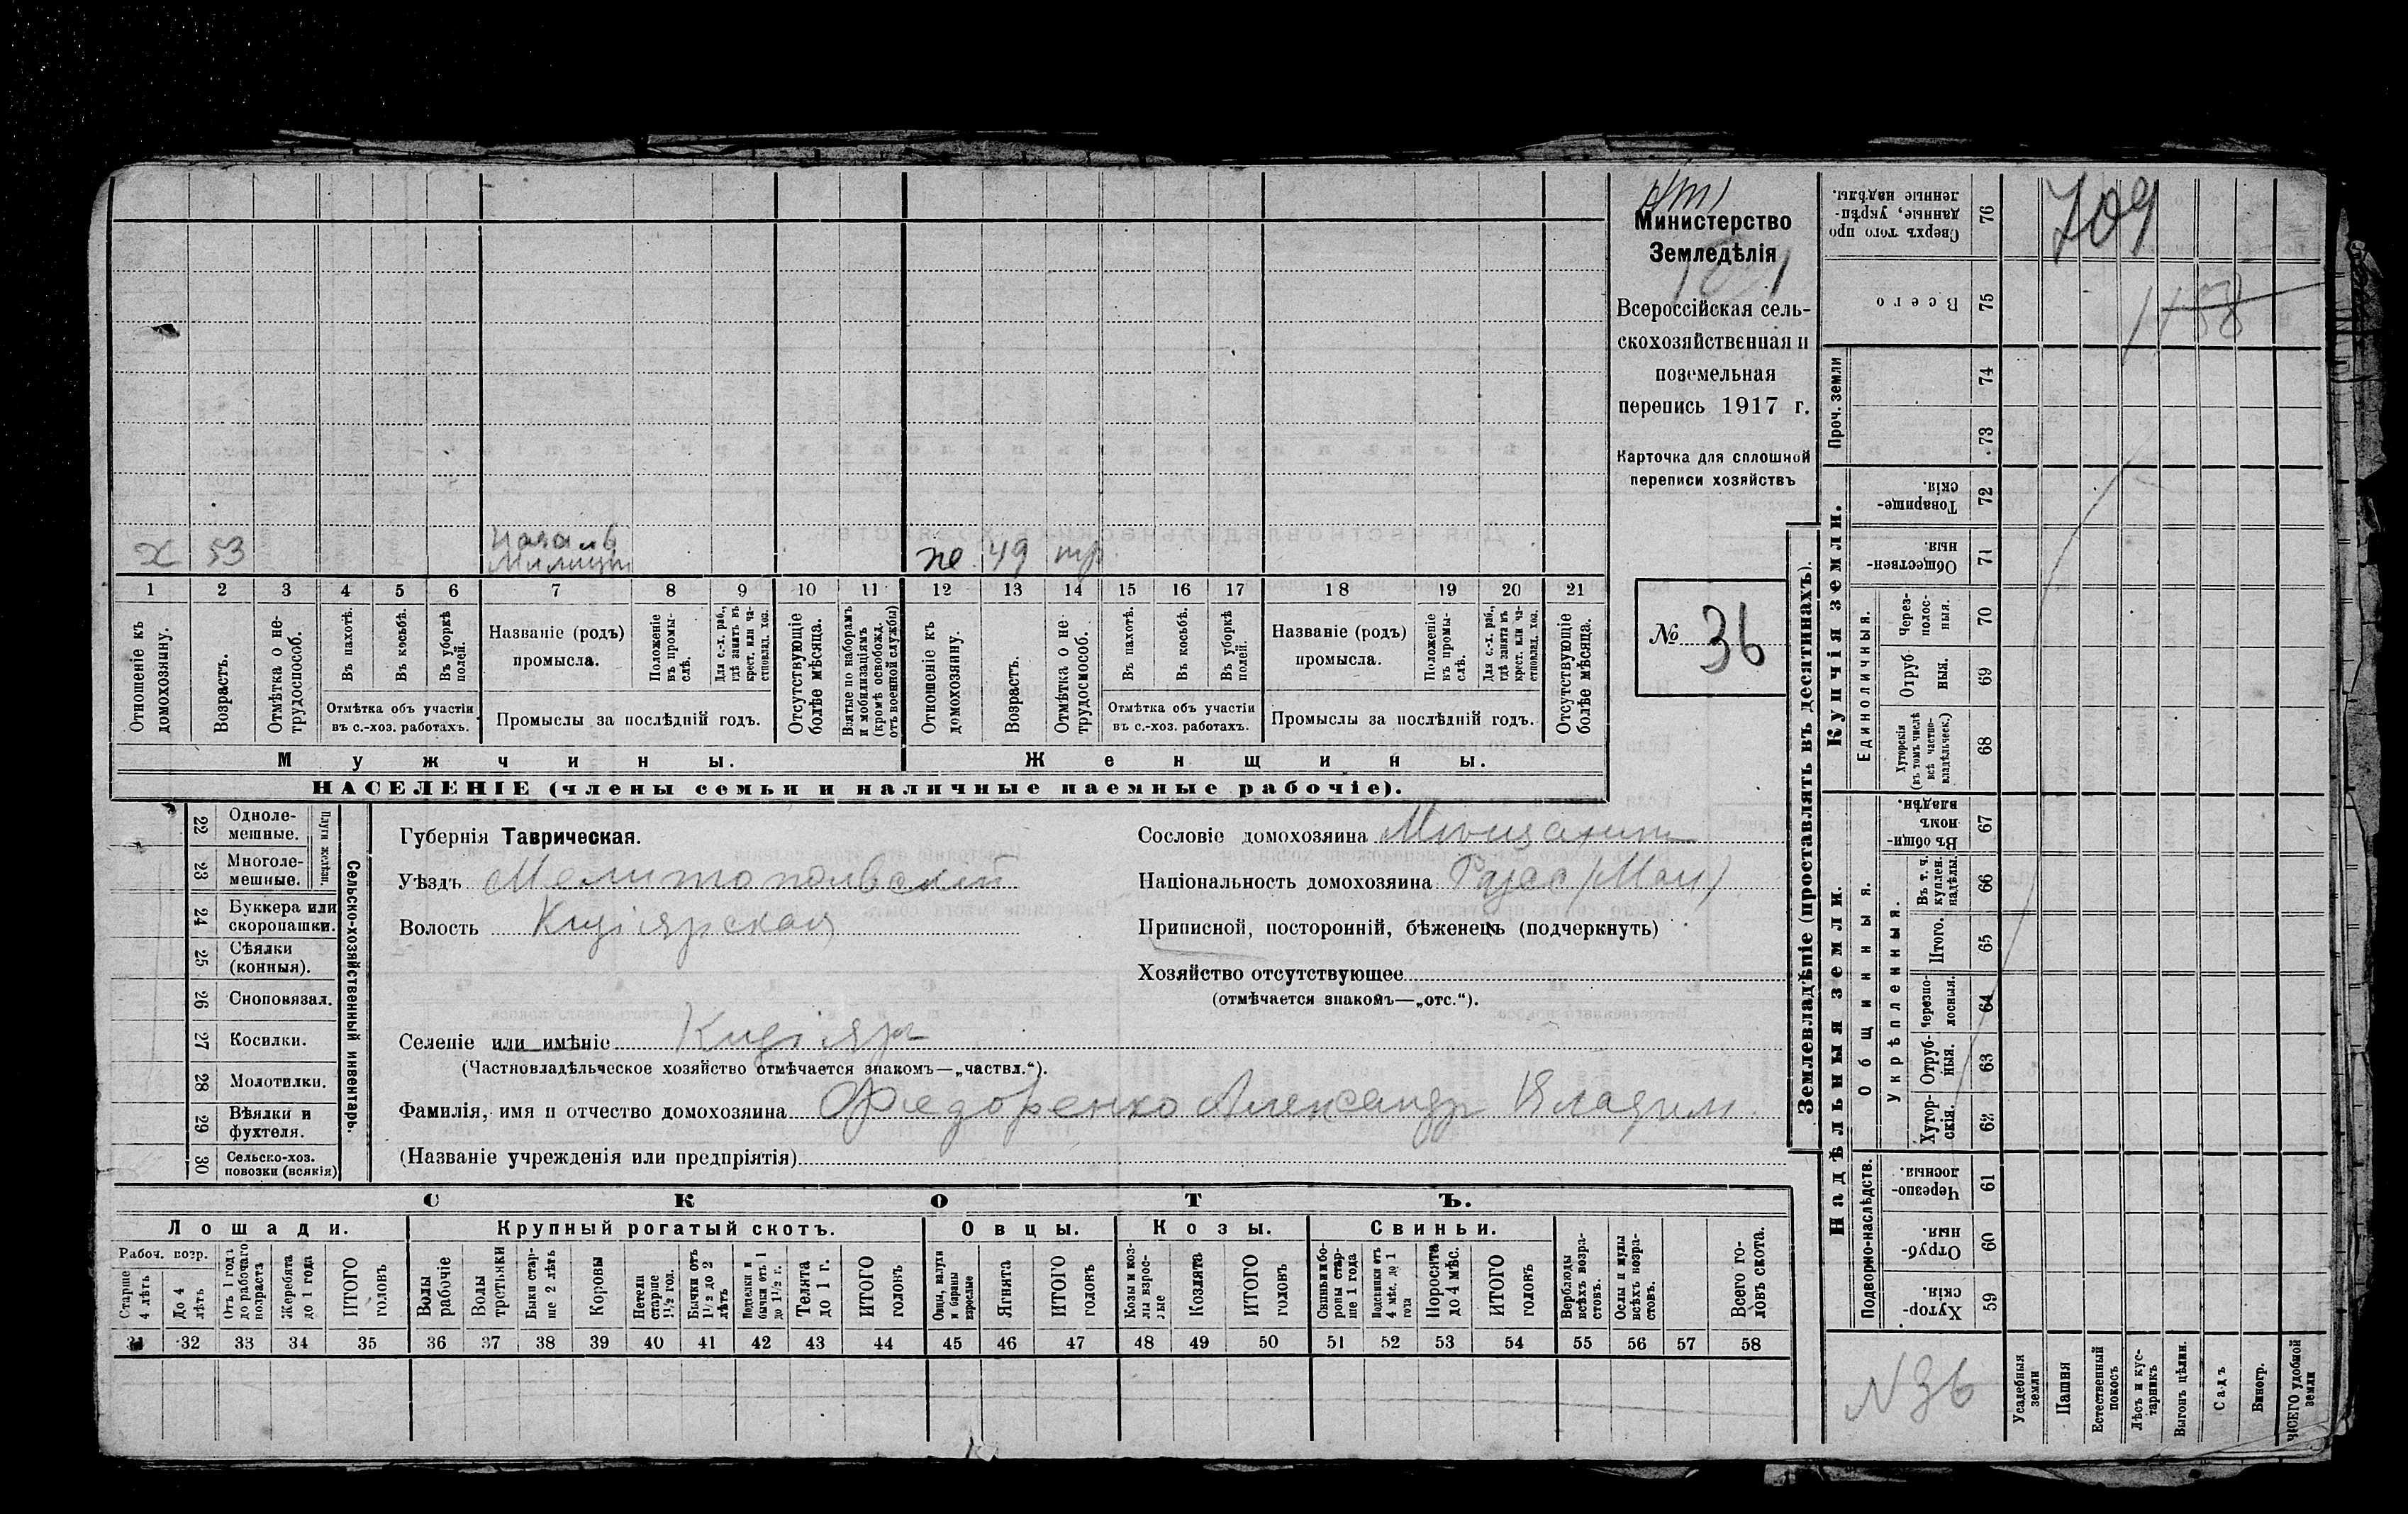 Министерство
Земледѣлія
Всероссійская сель-
скохозяйственная и
поземельная
перепись 1917 г.
Карточка для сплошной
переписи хозяйствъ
№ 36
х 53 Началь Милиціи
же 49 тр
1 2 3 4 5 6 7 8 9 10 11 12 13 14 15 16 17 18 19 20 21
Отношеніе къ домохозяину.
Возрастъ.
Отмѣтка о не-трудоспособ.
Въ пахотѣ.
Въ косьбѣ.
Въ уборкѣ полей.
Отмѣтка объ участіи
въ с.-хоз. работахъ.
Названіе (родъ)
промысла.
Положеніе въ промы-слѣ.
Для с.-х. раб., гдѣ занятъ въ крест. или ча-стновлад. хоз.
Промыслы за послѣдній годъ.
Отсутствующіе болѣе мѣсяца.
Взятые по наборамъ и мобилизаціямъ (кромѣ освобожд. отъ военной службы)
Отношеніе къ домохозяину.
Возрастъ.
Отмѣтка о не-трудоспособ.
Въ пахотѣ.
Въ косьбѣ.
Въ уборкѣ полей.
Отмѣтка объ участіи
въ с.-хоз. работахъ.
Названіе (родъ)
промысла.
Положеніе въ промы-слѣ.
Для с.-х. раб., гдѣ занята въ крест. или ча-стновлад. хоз.
Промыслы за послѣдній годъ.
Отсутствующіе болѣе мѣсяца.
Мужчины. Женщины.
НАСЕЛЕНІЕ (члены семьи и наличные наемные рабочіе).
Сельско-хозяйственный инвентарь.
Плуги желѣзн.
22 Одноле-мешные.
23 Многоле-мешные.
24 Буккера или скоропашки.
25 Сѣялки (конныя).
26 Сноповязал.
27 Косилки.
28 Молотилки.
29 Вѣялки и фухтеля.
30 Сельско-хоз. повозки (всякія)
Губернія Таврическая.
Уѣздъ Мелитопольский
Волость Кизіярская
Селеніе или имѣніе Кизіяръ
(Частновладѣльческое хозяйство отмѣчается знакомъ—„частвл.“).
Фамилія, имя и отчество домохозяина Федоренко Александръ Владим.
(Названіе учрежденія или предпріятія)
Сословіе домохозяина Мещанинъ
Національность домохозяина
Приписной, посторонній, бѣженецъ (подчеркнуть)
Хозяйство отсутствующее
(отмѣчается знакомъ—„отс.“).
СКОТЪ.
Лошади. Крупный рогатый скотъ. Овцы. Козы. Свиньи.
Рабоч. возр.
Старше 4 лѣтъ
До 4 лѣтъ
Отъ 1 года до рабочаго возраста
Жеребята до 1 года
ИТОГО головъ
Волы рабочіе
Волы третьяки
Быки стар-ше 2 лѣтъ
Коровы
Нетели старше 1½ год.
Бычки отъ 1½ до 2 лѣтъ
Подтелки и бычки отъ 1 до 1½ г.
Телята до 1 г.
ИТОГО головъ
Овцы, валухи и бараны взрослые
Ягнята
ИТОГО головъ
Козы и коз-лы взрос-лые
Козлята
ИТОГО головъ
Свиньи и бо-ровы стар-ше 1 года
Подсвинки отъ 4 мѣс. до 1 года
Поросята до 4 мѣс.
ИТОГО головъ
Верблюды всѣхъ возра-стовъ.
Ослы и мулы всѣхъ возра-стовъ.
Всего го-ловъ скота.
31 32 33 34 35 36 37 38 39 40 41 42 43 44 45 46 47 48 49 50 51 52 53 54 55 56 57 58
Землевладѣніе (проставлять въ десятинахъ).
Сверхъ того про данные, укрѣп-ленные надѣлы. 76
709
Всего 75
Проч. земли
74
73
Купчія земли.
Товарище-скія. 72
Обществен-ныя. 71
Единоличныя.
Через-полос-ныя. 70
Отруб-ныя. 69
Хуторскія (въ томъ числѣ всѣ частно-владѣльческ.) 68
Надѣльныя земли.
Общинныя.
Въ общин-номъ владѣн. 67
Укрѣпленныя.
Въ т. ч. куплен. надѣлы. 66
Итого. 65
Черезпо-лосныя. 64
Отруб-ныя. 63
Хутор-скія. 62
Подворно-наслѣдств.
Черезпо-лосныя. 61
Отруб-ныя. 60
Хутор-скія. 59
N 36
Усадебныя земли
Пашня
Естественный покосъ
Лѣсъ и кус-тарникъ
Выгонъ цѣлин.
Садъ
Виногр.
ВСЕГО удобной земли